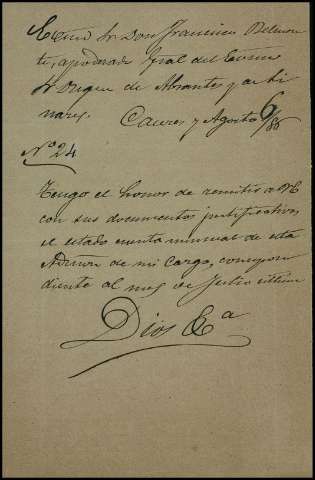 Excmo Sr Don Francisco Belmon
te, apoderado Gral del Excmo
Sr Duque de Abrantes y de Li
nares. Caceres y Agosto 6/86
Nº 24
Tengo el honor de remitir a VE
con sus documentos justificativos
el estado cuenta mensual de esta
Admon de mi cargo, correspon
diente al mes de Julio último
Dios &a